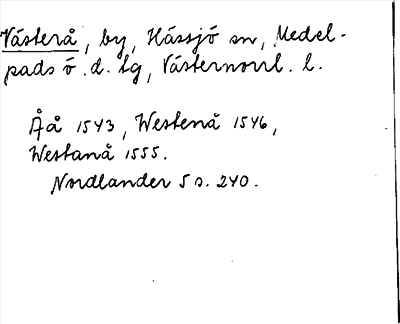 Västerå, by, Hässjö sn, Medel-
pads ö. d. tg, Västernorrl. l.
Åå 1543, Westenå 1546,
Westanå 1555.
Nordlander 5 s. 240.